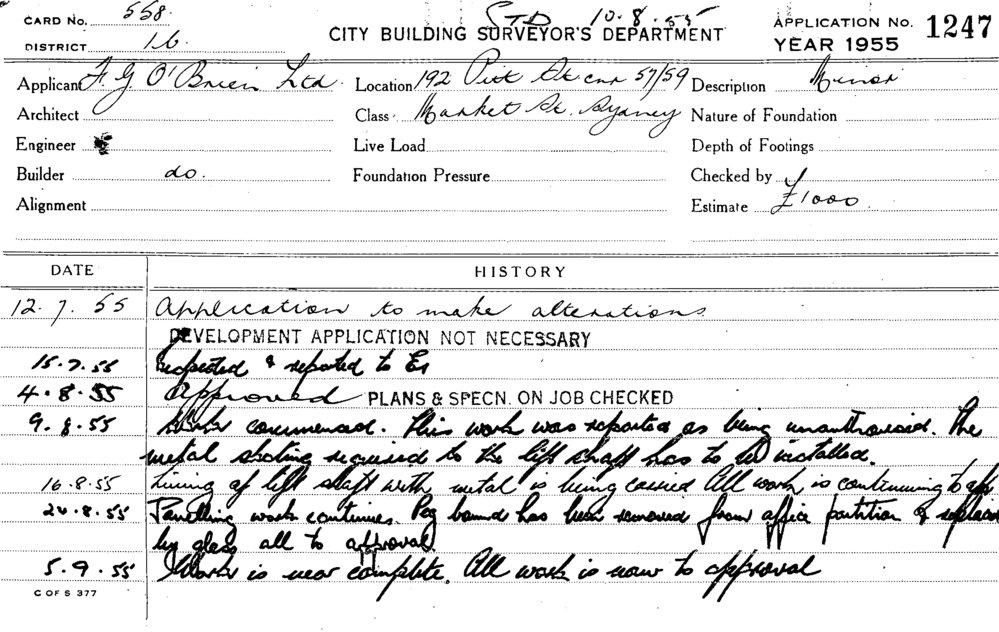 CARD No. 558.
STD 10.8.55
APPLICATION No. 1247
DISTRICT 16
CITY BUILDING SURVEYOR'S DEPARTMENT
YEAR 1955
Applicant F. G. O'Brien Ltd. Location 192 Pitt St cnr 57/59 Description Minor
Architect Class Market St. Sydney Nature of Foundation
Engineer Live Load Depth of Footings
Builder do. Foundation Pressure Checked by
Alignment Estimate £1000
DATE HISTORY
12.7.55 Application to make alterations
DEVELOPMENT APPLICATION NOT NECESSARY
15.7.55 Inspected & reported to
4.8.55 Approved PLANS & SPECN. ON JOB CHECKED
9.8.55 Work commenced. This work was reported as being unauthorised. The
metal sheeting required to the lift shaft has to be installed.
16.8.55 Lining of lift shaft with metal is being carried All work is continuing to
24.8.55 Panelling work continues. Peg board has been removed from office partition & replaced
by glass all to approval
5.9.55 Work is near complete. All work is now to approval
C OF S 377